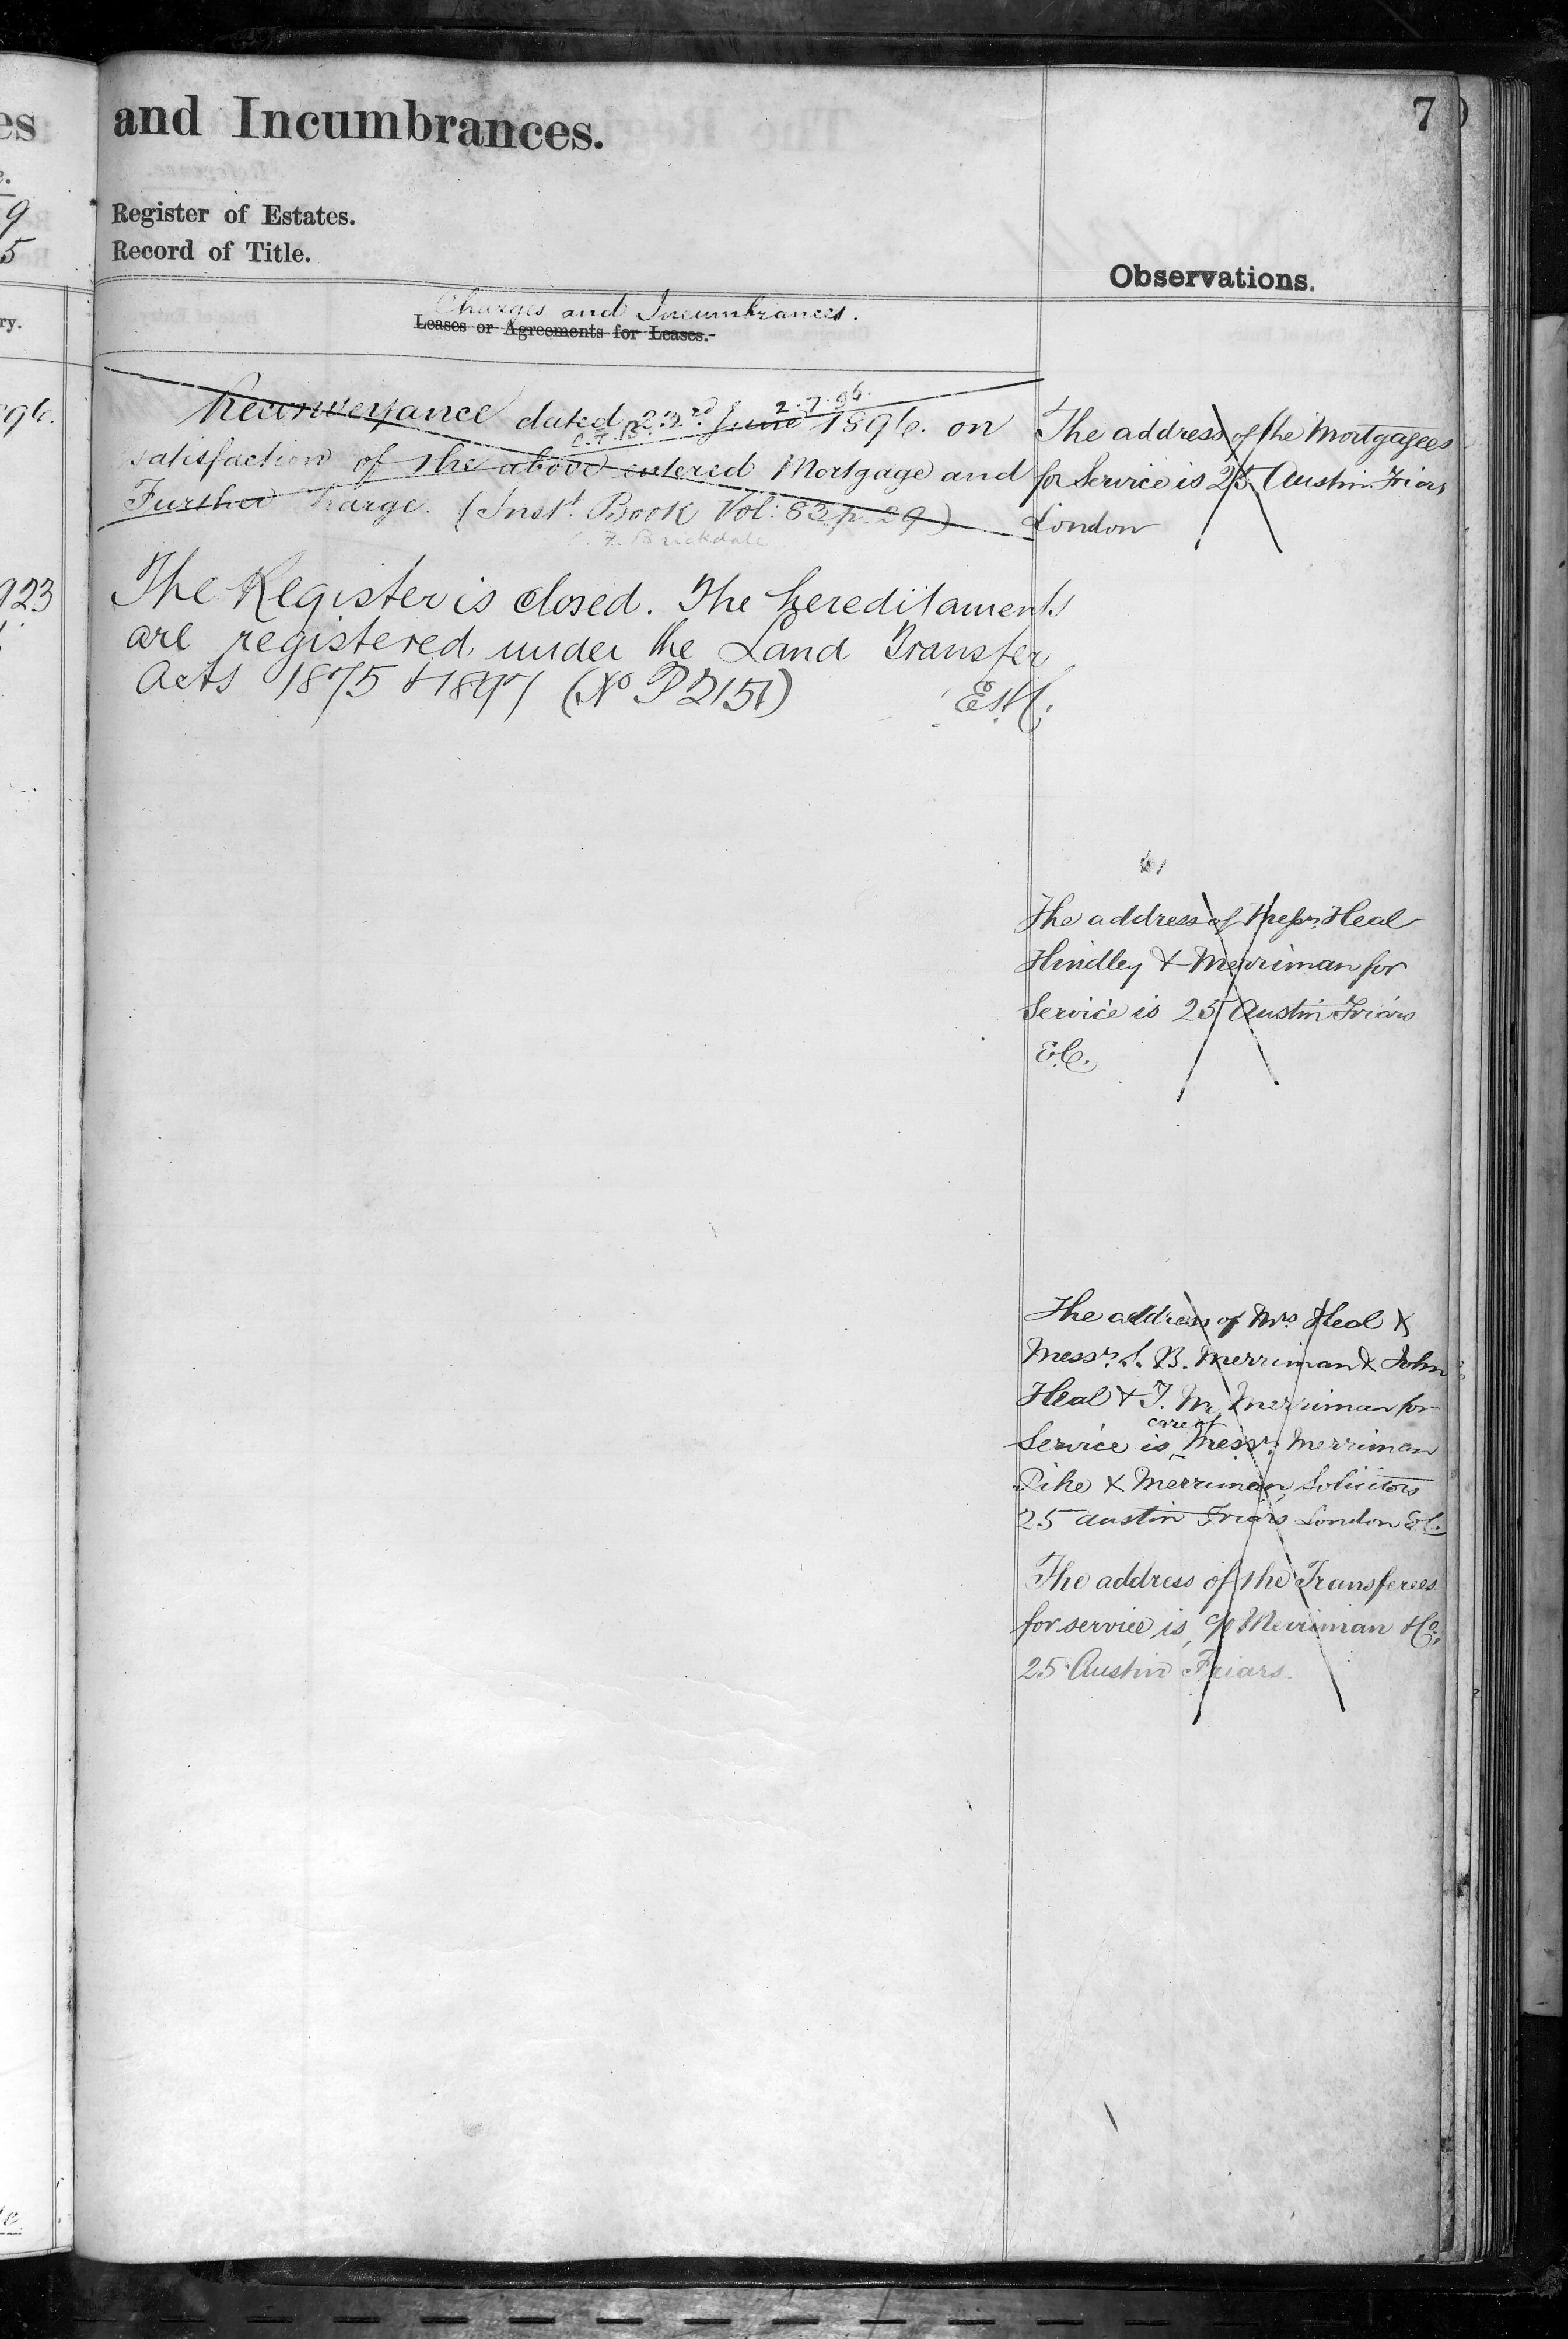 es
e.
9
5
ry.
896.
923
and Incumbrances.
7
Register of Estates.
Record of Title.
Observations.
Charges and Incumbrances.
Leases or Agreements for Leases.
2.7.96.
Reconveyance dated 23rd June 1896. on
C.F.B.
satisfaction of the above entered Mortgage and
Further Charge. (Inst. Book Vol: 83 p. 29)
C. F. Brickdale
The Register is closed. The hereditaments
are registered under the Land Transfer
Acts 1875 & 1897 (No P2151)
The address of the Mortgagees
for Service is 25 Austin Friars
London
The address of Messrs Heal
Hindley & Merriman for
Service is 25 Austin Friars
E.C.
The address of Mrs Heal &
Messrs S. B. Merriman & John
Heal & T. M. Merriman for
care of
Service is Messrs Merriman
Pike & Merriman Solicitors
25 Austin Friars London E.C.
The address of the Transferees
for service is, c/o Merriman & Co,
25 Austin Friars.